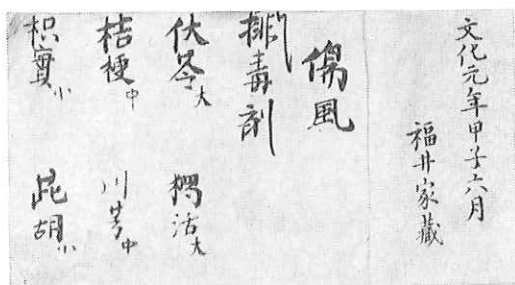 文化元年甲子六月
福井家藏
傷風
排毒剤
伏苓大 獨活大
桔梗中 川芎中
枳實小 昆胡小